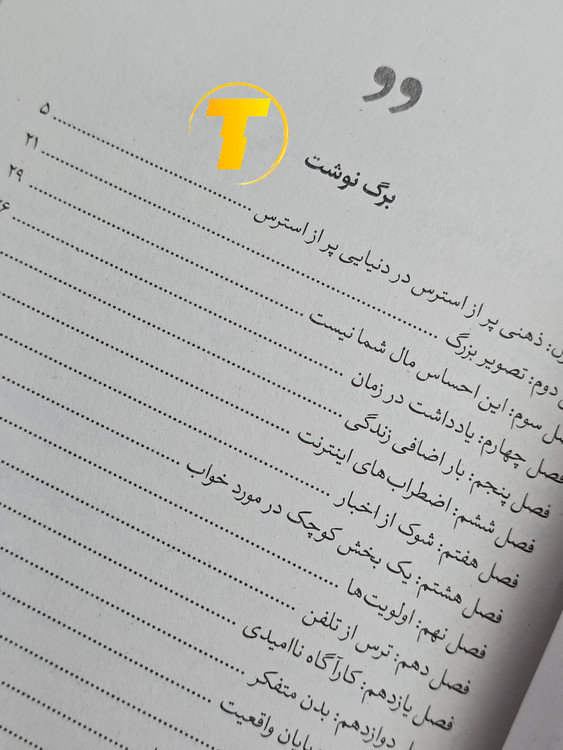 T
برگ نوشت
ذهنی پر از استرس در دنیایی پر از استرس ۵
دوم: تصویر بزرگ ۲۱
سوم: این احساس مال شما نیست ۲۹
فصل چهارم: یادداشت در زمان
فصل پنجم: بار اضافی زندگی
فصل ششم: اضطراب‌های اینترنت
فصل هفتم: شوک از اخبار
فصل هشتم: یک بخش کوچک در مورد خواب
فصل نهم: اولویت‌ها
فصل دهم: ترس از تلفن
فصل یازدهم: کارآگاه ناامیدی
دوازدهم: بدن متفکر
پایان واقعیت